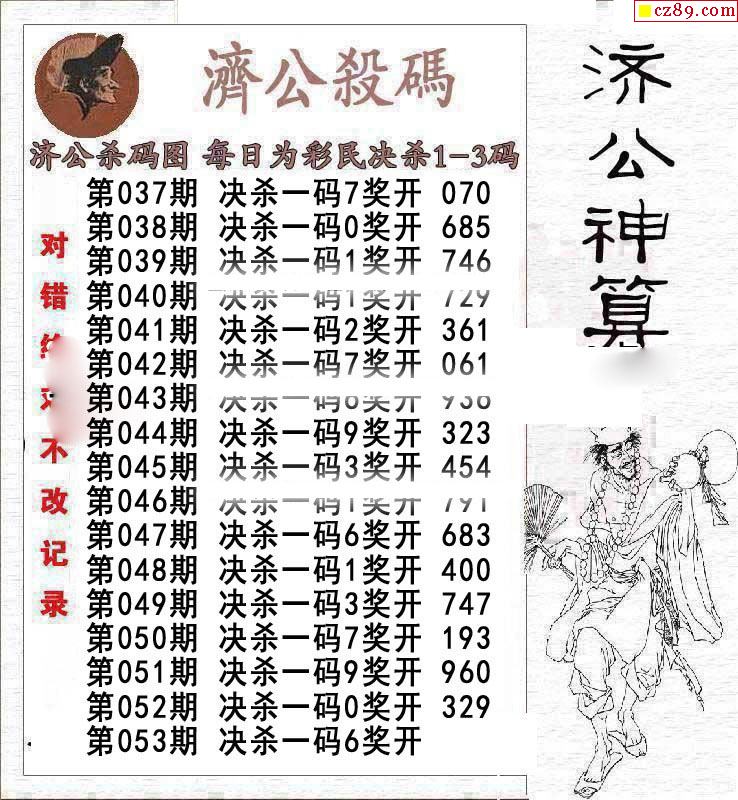 cz89.com
濟公殺碼
济公杀码图 每日为彩民决杀1-3码
第037期 决杀一码7奖开 070
第038期 决杀一码0奖开 685
第039期 决杀一码1奖开 746
第040期 决杀一码1奖开 729
第041期 决杀一码2奖开 361
第042期 决杀一码7奖开 061
第043期 决杀一码 奖开
第044期 决杀一码9奖开 323
第045期 决杀一码3奖开 454
第046期 决杀一码1奖开 791
第047期 决杀一码6奖开 683
第048期 决杀一码1奖开 400
第049期 决杀一码3奖开 747
第050期 决杀一码7奖开 193
第051期 决杀一码9奖开 960
第052期 决杀一码0奖开 329
第053期 决杀一码6奖开
对错不改记录
济公神算